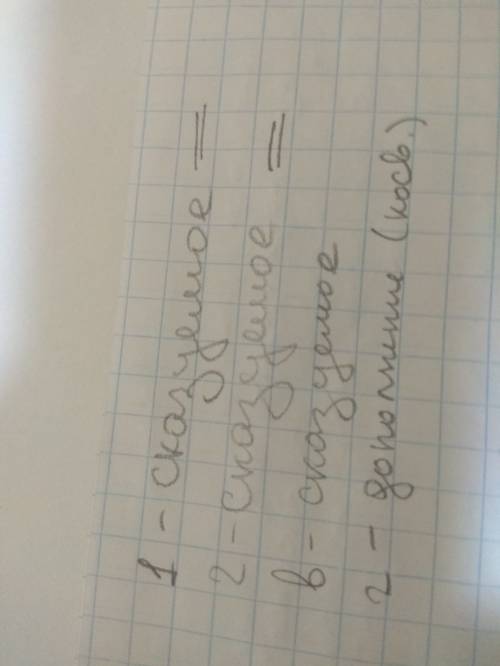 1 - сказуемое =
2 - сказуемое =
в - сказуемое
г - дополнение (косв.)